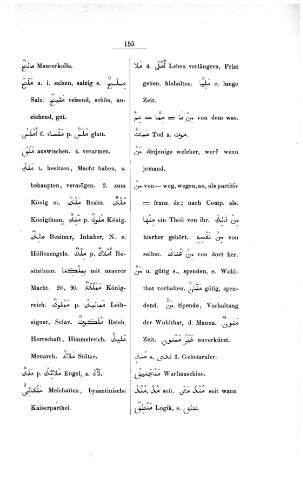 155
مالج Maurerkelle.
a. i. salzen, salzig s. مليح
Salz. مليح reizend, schön, an-
ziehend, gut.
p. glatt. املس
auswischen. 4. verarmen.
ملك i. besitzen, Macht haben, a.
behaupten, vermögen. 2. zum
König m. ملك Besitz. ملك
Königthum. ملك p. ملوك König.
مالك Besitzer, Inhaber, N. e.
Höllenengels. ملك p. املاك Be-
sitzthum. mit unserer
Macht. 20, 90. مملكة König-
reich. مملوك p. مماليك Leib-
eigner, Sclav. ملكوت Reich,
Herrschaft, Himmelreich. مليك
Monarch. ملاك Stütze.
ملك p. ملائكة Engel, s.
ملكانى Melchaiten, byzantinische
Kaiserparthei.
4. Leben verlängern, Frist
geben, hinhalten. مليا e. lange
Zeit.
von dem was.
Tod s. موت
من derjenige welcher, wer? wenn
jemand.
من von — weg, wegen, an, als partitiv
= franz. de; nach Comp. als.
منها ein Theil von ihr.
hierher gehört. von
selbst. von dort her.
من u. gütig s., spenden, e. Wohl-
that vorhalten. gütig, spen-
dend. من Spende, Vorhaltung
der Wohlthat, d. Manna.
غير ممنون unverkürzt.
s. ندى 3. Gebetsrufer.
منجنيق Wurfmaschine.
منذ, مذ seit. منذ متى seit wann
منطق Logik, s. نطق